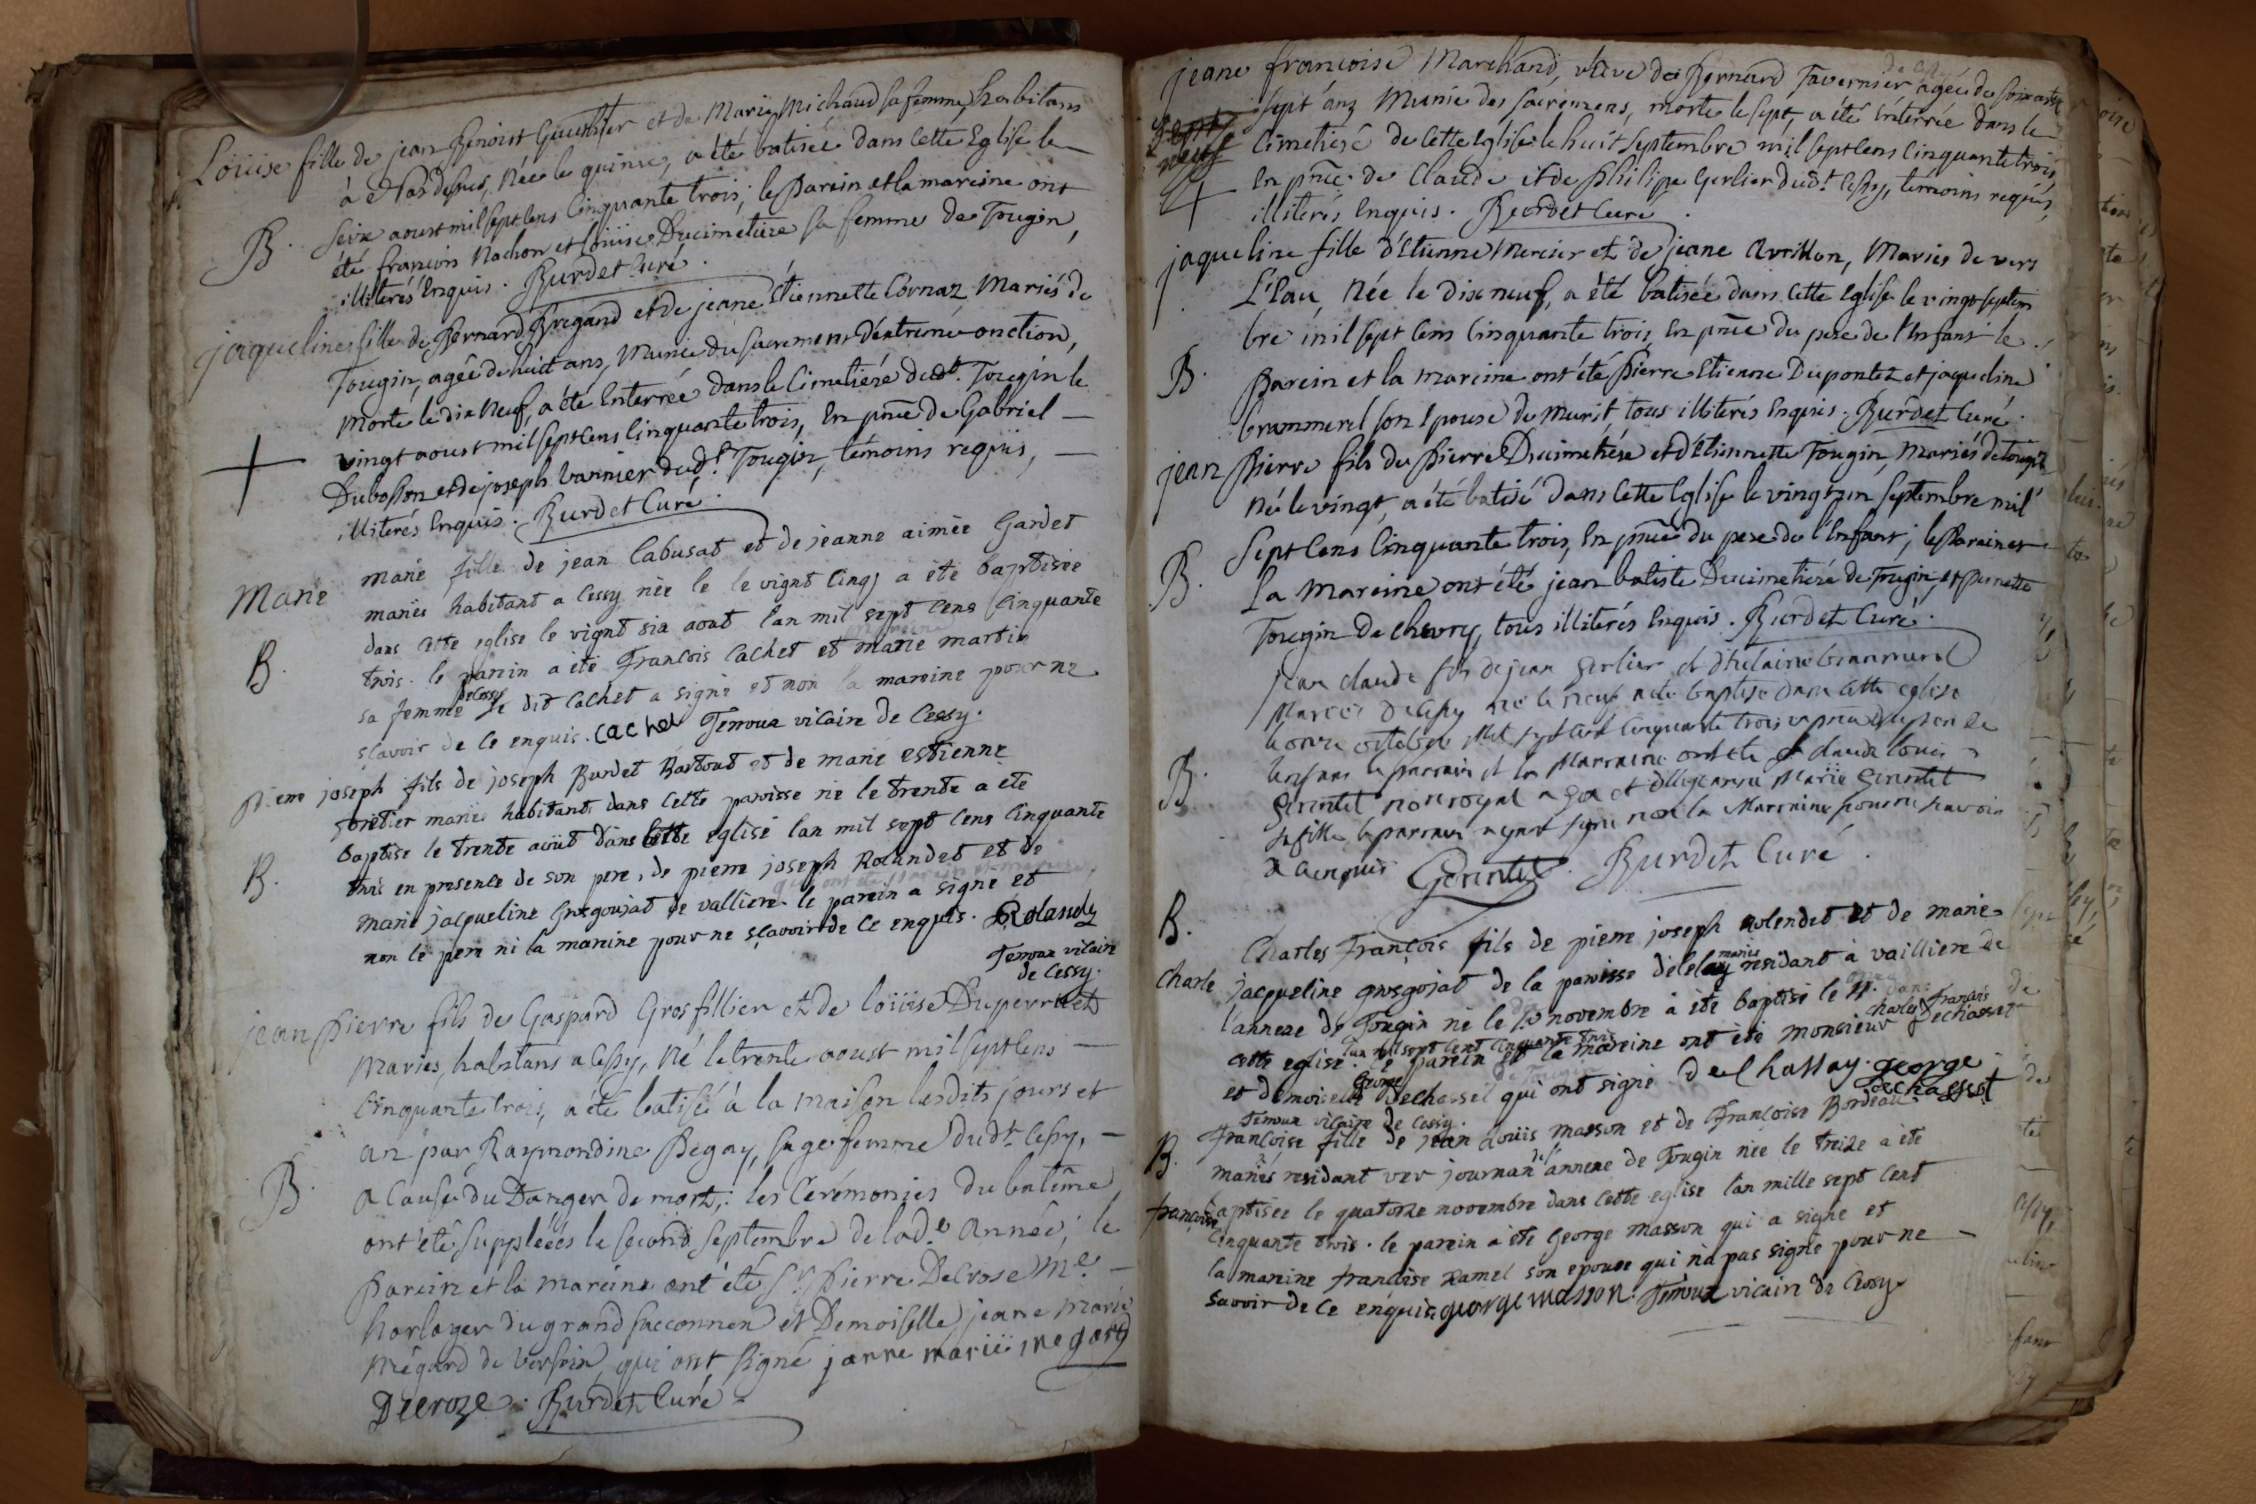 Loüise fille de jean Benoist Gauthier et de Marie Michaud sa femme, habitans
à Nas dessus, Née le quinze, a été batisée dans cette Eglise le
seize aoust mil sept cens cinquante trois; le Parein et la mareine ont
B.
été francois Nachon et Loüise Ducimetiere sa femme de Tougin,
illiterés Enquis. Burdet Curé.
jaqueline fille de Bernard Bregand et de jeane Etiennette Cornaz Mariés de
Tougin, agée de huit ans, Munie du sacrement d'extreme onction,
Morte le dix neuf, a été Enterrée dans le Cimetiére dudt. Tougin le
vingt aoust mil sept cens cinquante trois, En pnce de Gabriel
Dubosson et de joseph Varnier dudt. Tougin, témoins requis,
illiterés Enquis. Burdet Curé.
Marie
marie fille de jean Cabusat et de jeanne aimée Gardet
mariés habitant a Cessy née le le vignt cinq a été baptisée
dans cette eglise le vignt six aout lan mil sept cens cinquante
B.
trois. le parein a été François Cachet et marie martin
sa femme de Cessy le dit Cachet a signé et non la mareine pour ne
sçavoir de ce enquis. Cachet Temoux vicaire de Cessy.
pierre joseph fils de joseph Burdet Bastout et de marie estienne
Sordier mariés habitant dans cette paroisse né le trente a été
baptisé le trente aoüt dans cette eglise lan mil sept cens cinquante
B.
trois en presence de son pere, de pierre joseph Rolandet et de
marie jacqueline Grosgoujat de valliere le parein a signé et
non le pere ni la mareine pour ne sçavoir de ce enquis. Rolandez
Temoux vicaire
de Cessy.
jean Pierre fils de Gaspard Grosfillier et de Loüise Duperruet
Mariés, habitans a Cessy, Né le trente aoust mil sept cens
Cinquante trois, a été batisé à la maison lesdits jours et
an par Raymondine Begay, sage femme dudt. Cessy,
B.
a Cause du Danger de mort; les Cerémonies du batême
ont été suppléées le second septembre de lade. année; le
Parein et la mareine ont été Sr. Pierre Decrose Me.
horloger du grand Sacconnex et Demoiselle jeane Marie
Mégard de Versoix, qui ont signé janne marie megard
Decroze. Burdet Curé.
jeane francoise Marchand, vëuve de Bernard Tavernier de Cessy agée de soixante
sept ans Munie des sacremens, morte le sept, a été Enterrée dans le
Cimetiére de cette Eglise le huit septembre mil sept cens cinquante trois
En pnce. de Claude et de Philipe Gerlier dudt. Cessy, temoins requis,
illiterés Enquis. Burdet Curé.
jaqueline fille d'Etienne Mercier et de jeane Avrillon, Mariés de vers
L'Eau, Née le Dix neuf, a été batisée dans cette Eglise le vingt septem
bre mil sept cens cinquante trois, En pnce du pere de l'Enfant le
B.
Parein et la mareine ont été Pierre Etienne Dupontet et jaqueline
Grammerel son Epouse de Murit, tous illiterés Enquis. Burdet Curé.
jean Pierre fils de Pierre Ducimetiére et d'Etiennette Tougin, Mariés de Tougin
Né le vingt, a été batisé dans cette Eglise le vingt un septembre mil
Sept Cens Cinquante trois, En pnce du pere de l'Enfant; le Parein et
B.
La Mareine ont été jean batiste Ducimetiére de Tougin, et pernette
Tougin de Chevry, tous illiterés Enquis. Burdet Curé.
jean claude fils de jean Gerlier et d'hélaine Grammerel
Mariés de Cessy né le neuf a été baptisé dans cette eglise
le onze octobre Mil sept cent cinquante trois en pnce du pere de
B.
lenfant le parrain et la Marraine ont été Sr claude louis
Girintet notre royal a Gex et dlle jeanne Marie Gerintet
sa fille le parrain ayant signé non la Marraine pour ne savoir
de ce enquis Gerintet. Burdet Curé.
B.
Charles François fils de pierre joseph rolendet et de marie
Charle
jacqueline grosgojat de la paroisse de lelay mariés residant à vailliere de
l'annexe de Tougin né le 10 novembre à été baptisé le 11 dans
cette eglise lan mil sept cent cinquante trois. le parein et la mareine ont été monsieur charles françois Dechasset
et demoiselle George dechassel qui ont signé. De Chassay. george
dechasset
Temoux vicaire de Cessy.
B.
françoise fille de jean Louis masson et de Françoise Bordeau
mariés residant ver journan de l'annexe de Tougin née le treize a été
françoise
baptisée le quatorze novembre dans cette eglise l'an mille sept cent
cinquante trois. le parein a été George masson qui a signé et
la mareine françoise Ramel son epouse qui n'a pas signé pour ne
savoir de ce enquis george masson. Temoux vicaire de Cessy